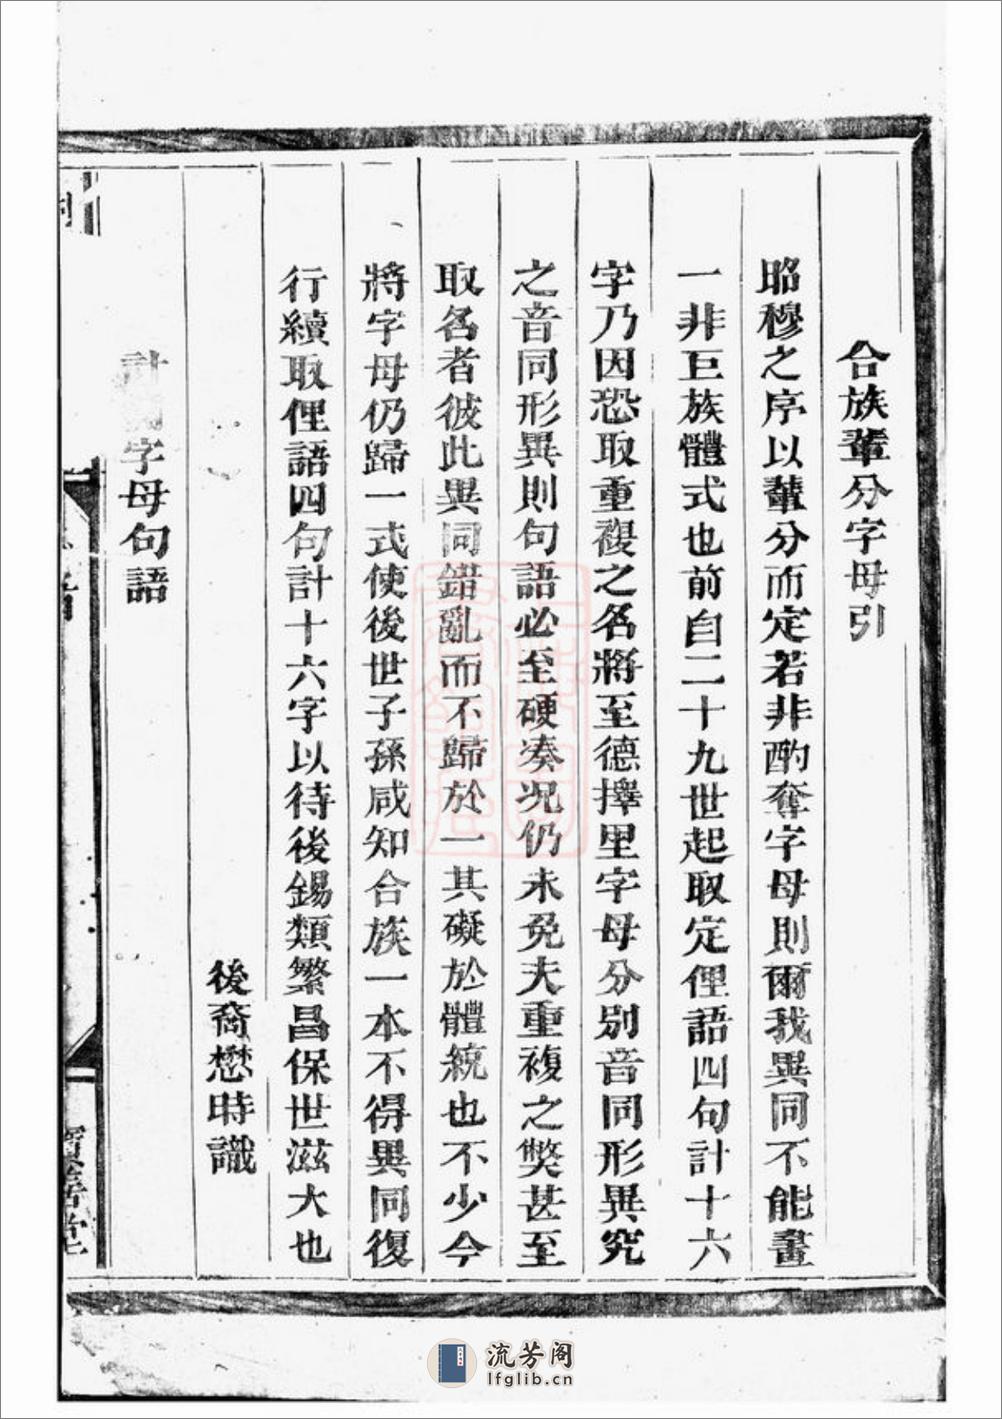 合族輩分字母引
昭穆之序以輩分而定若非酌奪字母則爾我異同不能畫
一非巨族體式也前自二十九世起取定俚語四句計十六
字乃因恐取重複之名將至德擇里字母分別音同形異究
之音同形異則句語必至硬凑况仍未免夫重複之獘甚至
取名者彼此異同錯亂而不歸於一其礙於體統也不少今
將字母仍歸一式使後世子孫咸知合族一本不得異同復
行續取俚語四句計十六字以待後錫類繁昌保世滋大也
後裔懋時識
計開字母句語
寶善堂
流芳阁
lfglib.cn